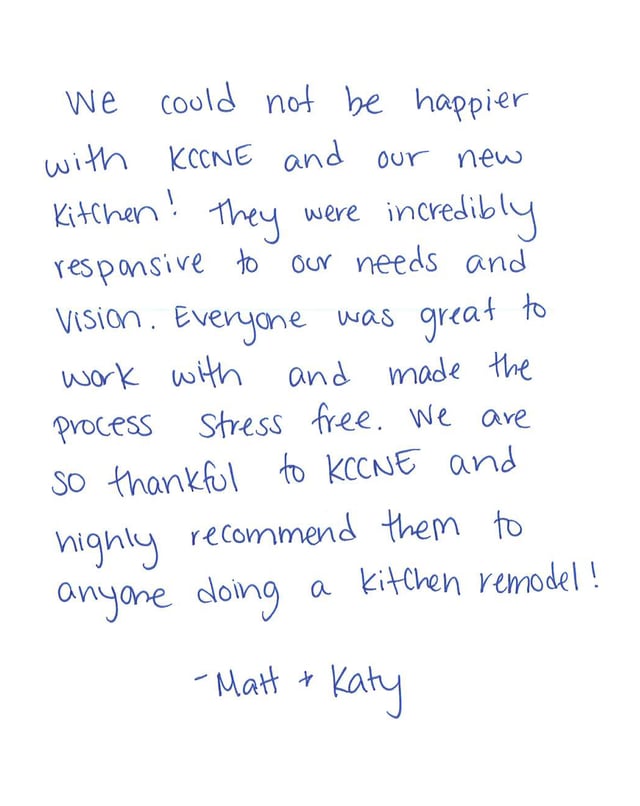 We could not be happier
with KCCNE and our new
Kitchen! They were incredibly
responsive to our needs and
vision. Everyone was great to
work with and made the
process stress free. We are
so thankful to KCCNE and
highly recommend them to
anyone doing a kitchen remodel!
-Matt + Katy